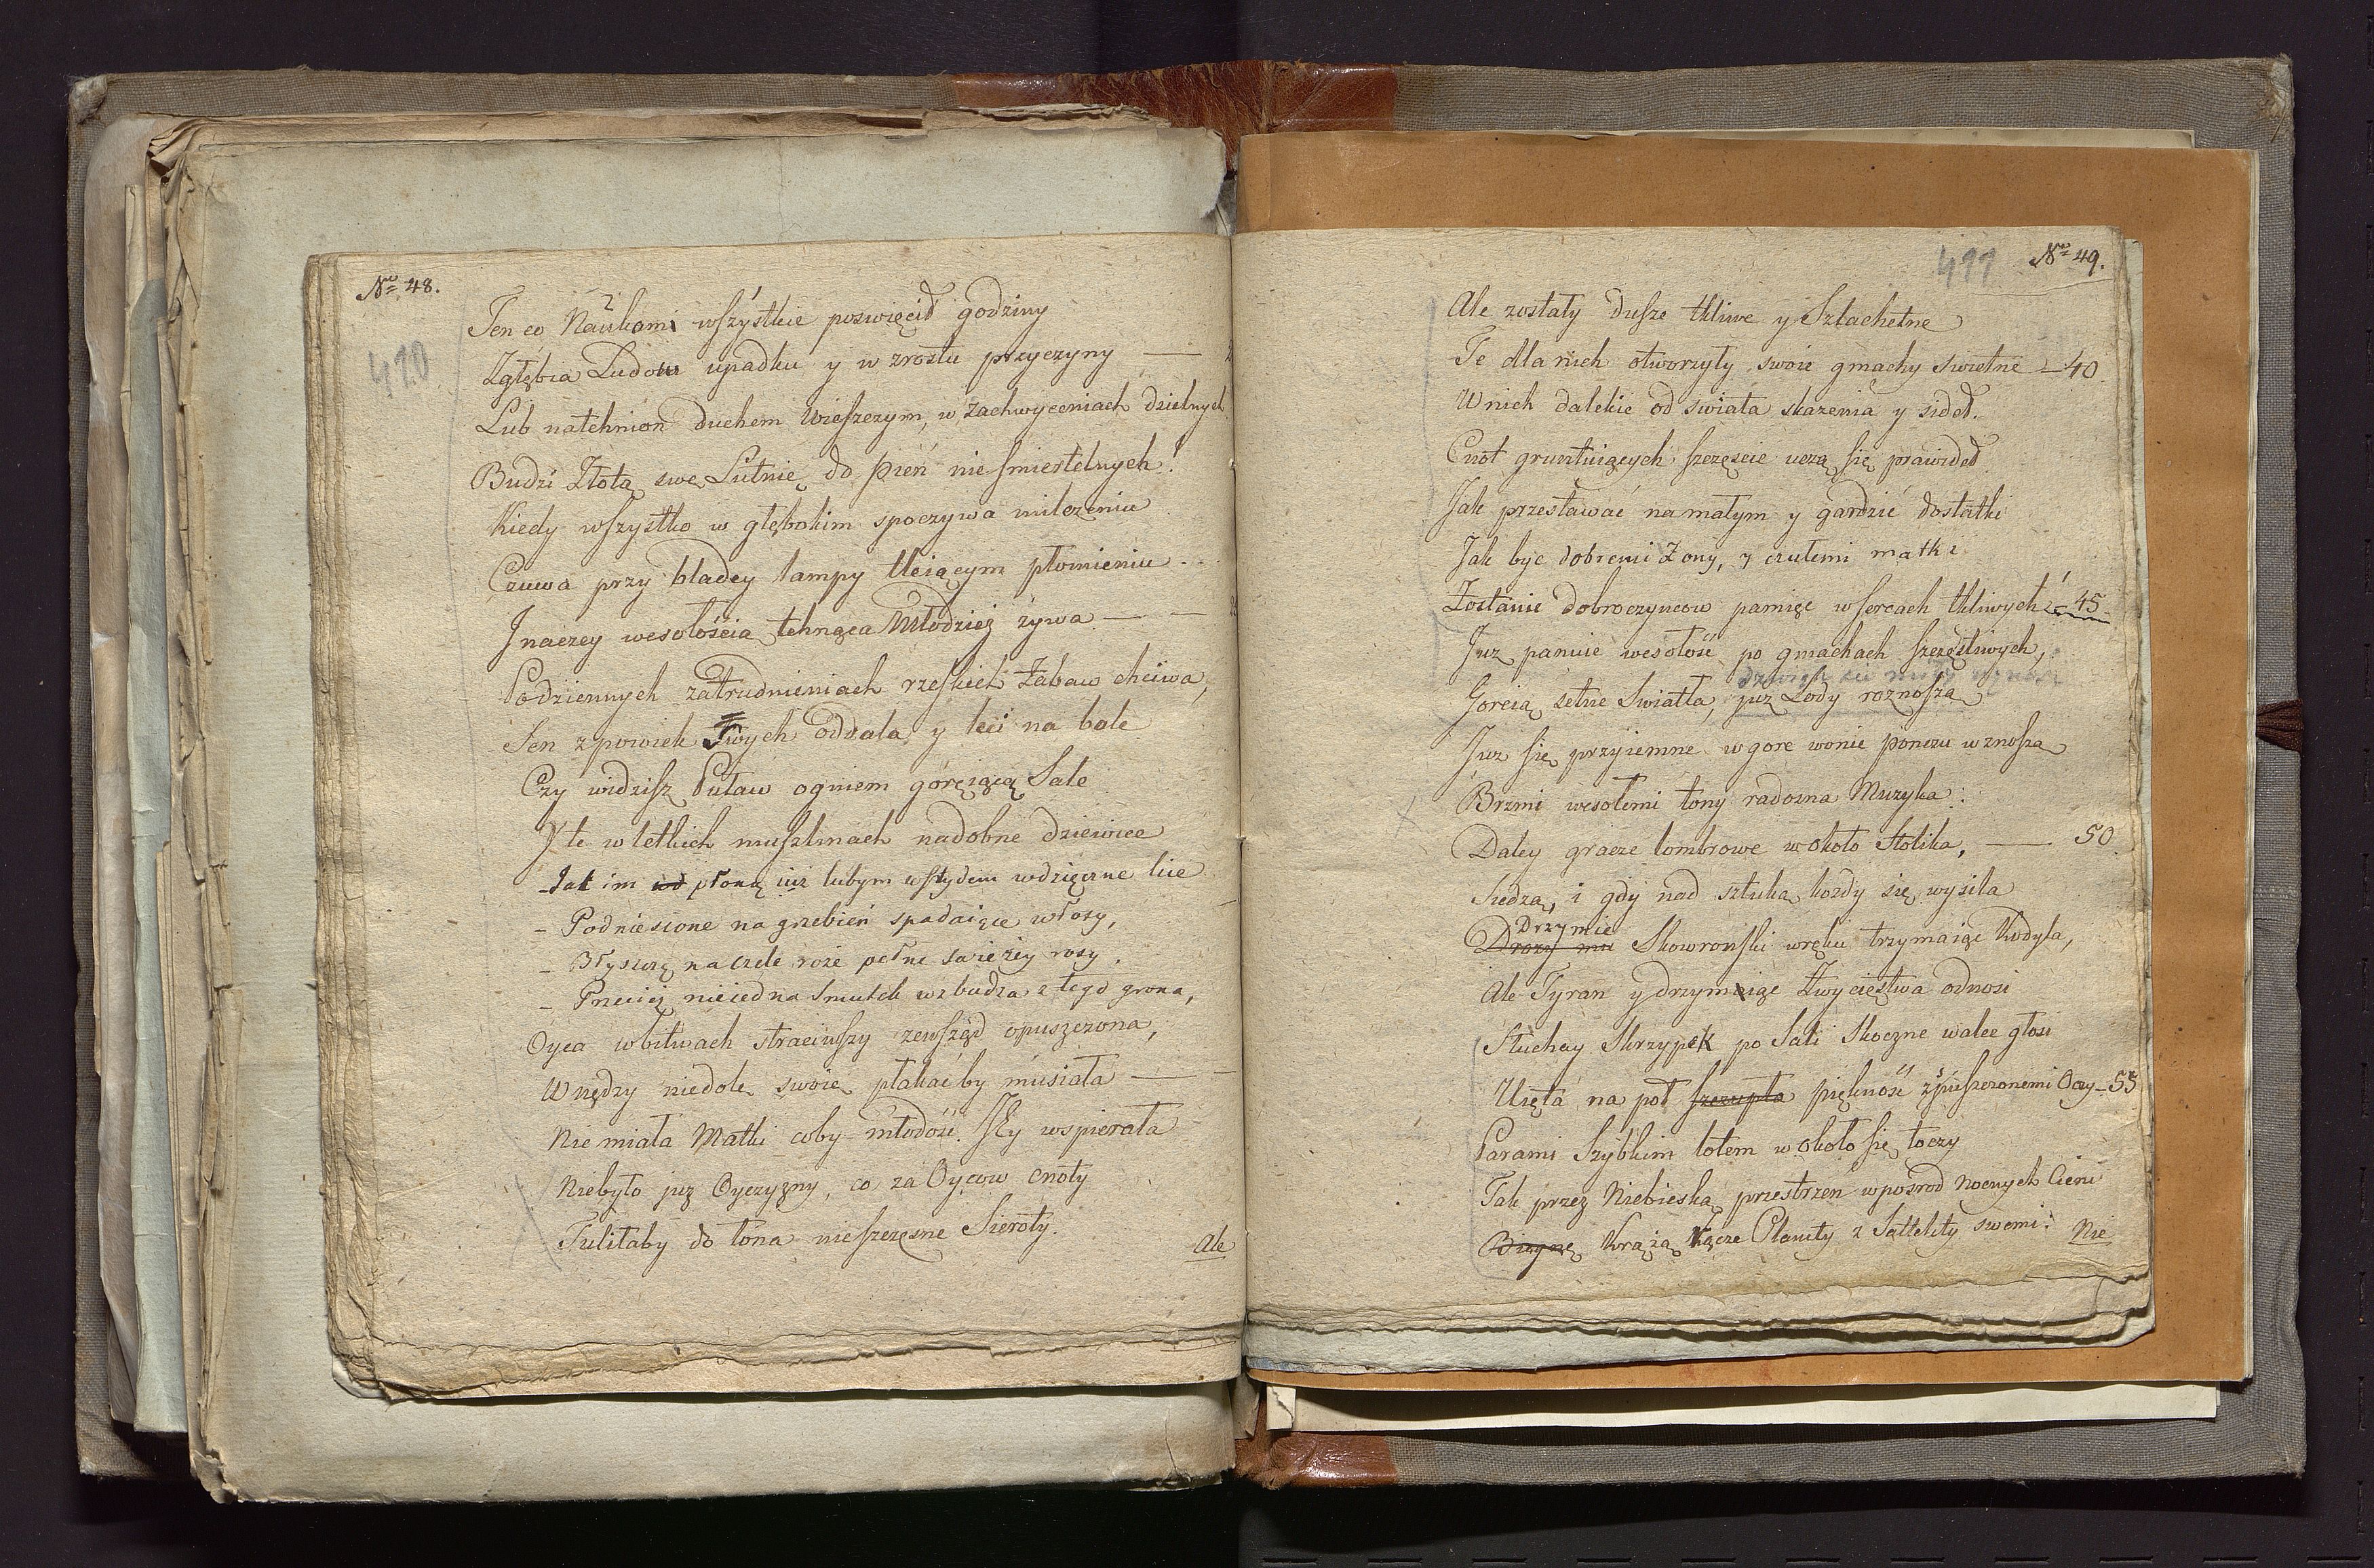 No 48.
410
Ten co Naukami wszystkie poswięcił godziny
Zgłębia Ludow upadku y wzrostu przyczyny —
Lub natchnion duchem Wieszczym, w zachwyceniach dzielnych
Budzi Złotą swę Lutnię do pień nie smiertelnych!
Kiedy wszystko w głębokim spoczywa milczeniu
Czuwa przy bladey lampy tleiącym płomieniu...
Inaczey wesołościa tchnąca Młodzież żywa —
Podziennych zatrudnieniach rzeskich Zabaw chciwa,
Sen z powiek Twych oddala y leci na bale
Czy widzisz Puław ogniem goreiącą Sale
Y te w letkich muszlinach nadobne dziewice
Jak im płoną iuż lubym wstydem wdzięczne lice
– Podniesione na grzebień spadaiące włosy,
– Błyszczą na czele roże pełne swieżey rosy,
– Przecież nieiedna smutek wzbudza z tego grona,
Oyca w bitwach straciwszy zewsząd opuszczona,
W nędzy niedolę swoię płakać by musiała —
Nie miała Matki coby młodość Jey wspierała
Niebyło już Oyczyzny, co za Oycow cnoty
Tuliłaby do łona nieszczęsne Sieroty.
Ale
411
No 49.
Ale zostały dusze tkliwe y Szlachetne
Te dla nich otworzyły swoie gmachy swietne — 40
W nich dalekie od swiata skazenia y sideł.
Cnot gruntuiących szczęscie uczą się prawideł
Jak przestawać na małym y gardzić dostatki
Jak byc dobremi Zony, y czułemi matki
Zostanie dobroczyncow pamięc w sercach tkliwych — 45
Juz panuie wesołość po gmachach szczęsliwych,
Goreią setne Swiatła, już Lody roznoszą
Juz się przyiemne w gore wonie ponczu wznoszą
Brzmi wesołemi tony radosna Muzyka:
Daley gracze lombrowe wokoło Stolika, — 50.
Siedzą, i gdy nad sztuką kożdy się wysila
Drzymie
Drozy mu Skowroński w ręku trzymaiąc Kodyla,
Ale Tyran y drzymaiąc Zwycięstwa odnosi
Słuchay Skrzypek po Sali Skoczne walce głosi
Uięta na poł szczupła piękność z spuszczonemi Oczy — 55
Parami Szybkim lotem wokoło się toczy
Tak przez Niebieską przestrzen wposrod nocnych Cieni
Krążą Planety z Sattelity swemi:
Nie